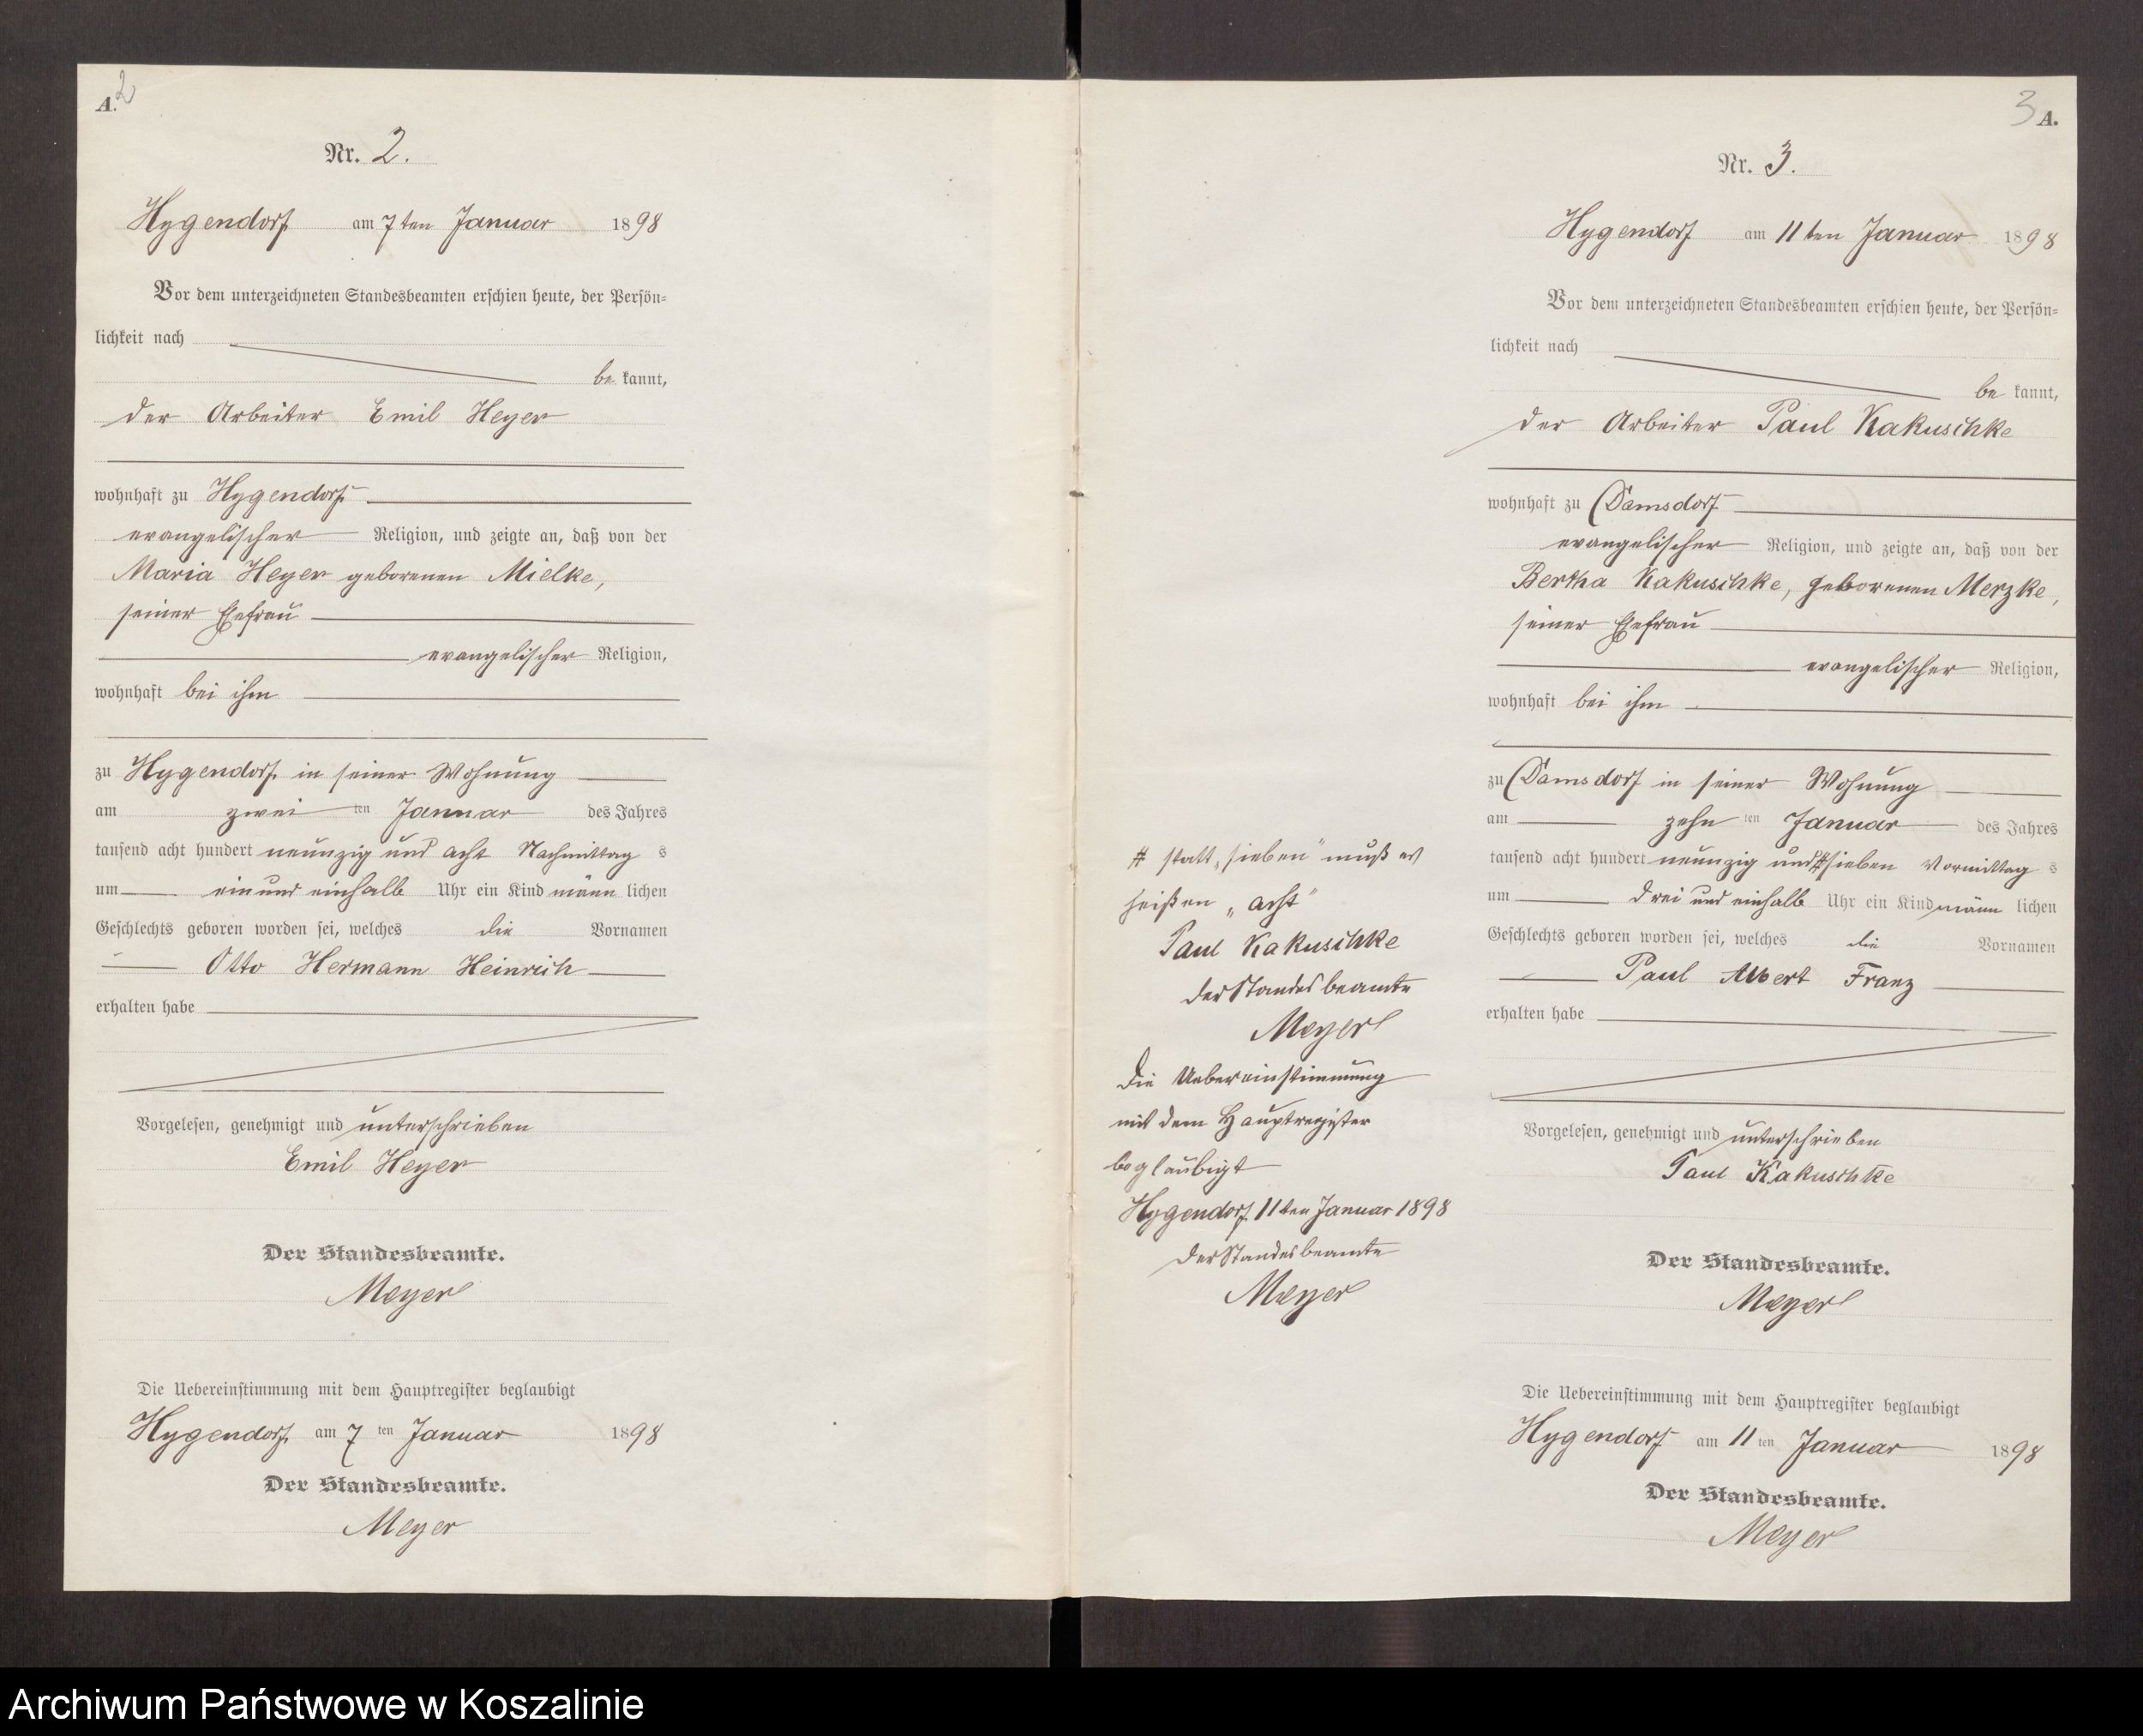 A. 2
Nr. 2.
Hygendorf am 7ten Januar 1898
Vor dem unterzeichneten Standesbeamten erschien heute, der Persön=
lichkeit nach
be kannt,
der Arbeiter Emil Heyer
wohnhaft zu Hygendorf
evangelischer Religion, und zeigte an, daß von der
Maria Heyer geborenen Mielke,
seiner Ehefrau
evangelischer Religion,
wohnhaft bei ihm
zu Hygendorf in seiner Wohnung
am zwei ten Januar des Jahres
tausend acht hundert neunzig und acht Nachmittag s
um ein und einhalb Uhr ein Kind männ lichen
Geschlechts geboren worden sei, welches die Vornamen
Otto Hermann Heinrich
erhalten habe
Vorgelesen, genehmigt und unterschrieben
Emil Heyer
Der Standesbeamte.
Meyer
Die Uebereinstimmung mit dem Hauptregister beglaubigt
Hygendorf am 7 ten Januar 1898
Der Standesbeamte.
Meyer
3 A.
Nr. 3.
Hygendorf am 11ten Januar 1898
Vor dem unterzeichneten Standesbeamten erschien heute, der Persön=
lichkeit nach
be kannt,
der Arbeiter Paul Kakuschke
wohnhaft zu Damsdorf
evangelischer Religion, und zeigte an, daß von der
Bertha Kakuschke, geborenen Merzke,
seiner Ehefrau
evangelischer Religion,
wohnhaft bei ihm
zu Damsdorf in seiner Wohnung
am zehn ten Januar des Jahres
tausend acht hundert neunzig und # sieben Vormittag s
um drei und einhalb Uhr ein Kind männ lichen
Geschlechts geboren worden sei, welches die Vornamen
Paul Albert Franz
erhalten habe
Vorgelesen, genehmigt und unterschrieben
Paul Kakuschke
Der Standesbeamte.
Meyer
Die Uebereinstimmung mit dem Hauptregister beglaubigt
Hygendorf am 11 ten Januar 1898
Der Standesbeamte.
Meyer
# statt „sieben" muß es
heißen „acht"
Paul Kakuschke
der Standesbeamte
Meyer
Die Uebereinstimmung
mit dem Hauptregister
beglaubigt
Hygendorf 11ten Januar 1898
der Standesbeamte
Meyer
Archiwum Państwowe w Koszalinie